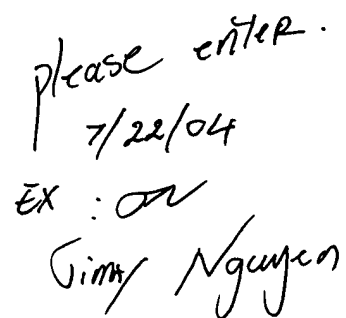 please enter.
7/22/04
EX :
Jimmy Nguyen